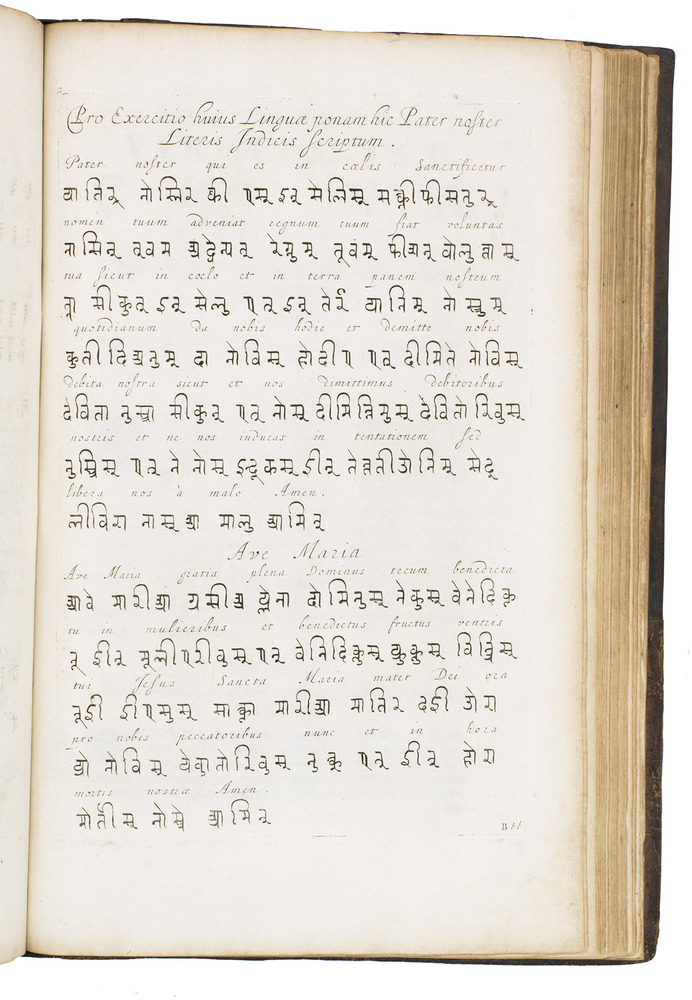 Pro Exercitio huius Linguæ ponam hîc Pater noster
Literis Indicis scriptum.
Pater noster qui es in cœlis Sanctificetur
पातिर् नोस्तिर् क्वी एस् इन् सेलिस् सङ्क्तीफीसेतुर्
nomen tuum adveniat regnum tuum fiat voluntas
नामिन् तूवम् रेग्नुम् तूवम् फीयत् वोलुन्तास्
tua sicut in cœlo et in terra panem nostrum
सीकुत् इन् सेलु एत् इन् तेर्रा पानिम् नोस्त्रुम्
quotidianum da nobis hodie et demitte nobis
दा नोविस् होदीए एत् दीमिते नोविस्
debita nostra sicut et nos dimittimus debitoribus
देविता नुस्त्रा सीकुत् एत् नोस् दीमित्तिमुस् देवितोरिवुस्
nostris et ne nos inducas in tentationem sed
नुस्त्रिस् एत् ने नोस् इन्दूकस् ईन् सेद्
libera nos à malo Amen.
लीविरा नास् आ मालु आमिन्
Ave Maria
Ave Maria gratia plena Dominus tecum benedicta
आवे मारीआ ग्रसीअ प्लेना दोमिनुस् तेकुस् वेनेदिक्त
tu in mulieribus et benedictus fructus ventris
तू ईन् मूलीएरीवुस् एत् वेनिदिक्तुस् फ्रुक्तुस् विन्त्रिस्
tui Jesus Sancta Maria mater Dei ora
तूई ईएसुस् साङ्क्ता मारीआ मातिर देई ओरा
pro nobis peccatoribus nunc et in hora
प्रो नोविस् पेकातोरिवुस् एत् ईन् होरा
mortis nostræ Amen.
मोर्तीस् नोस्त्रे आमिन्
B bb